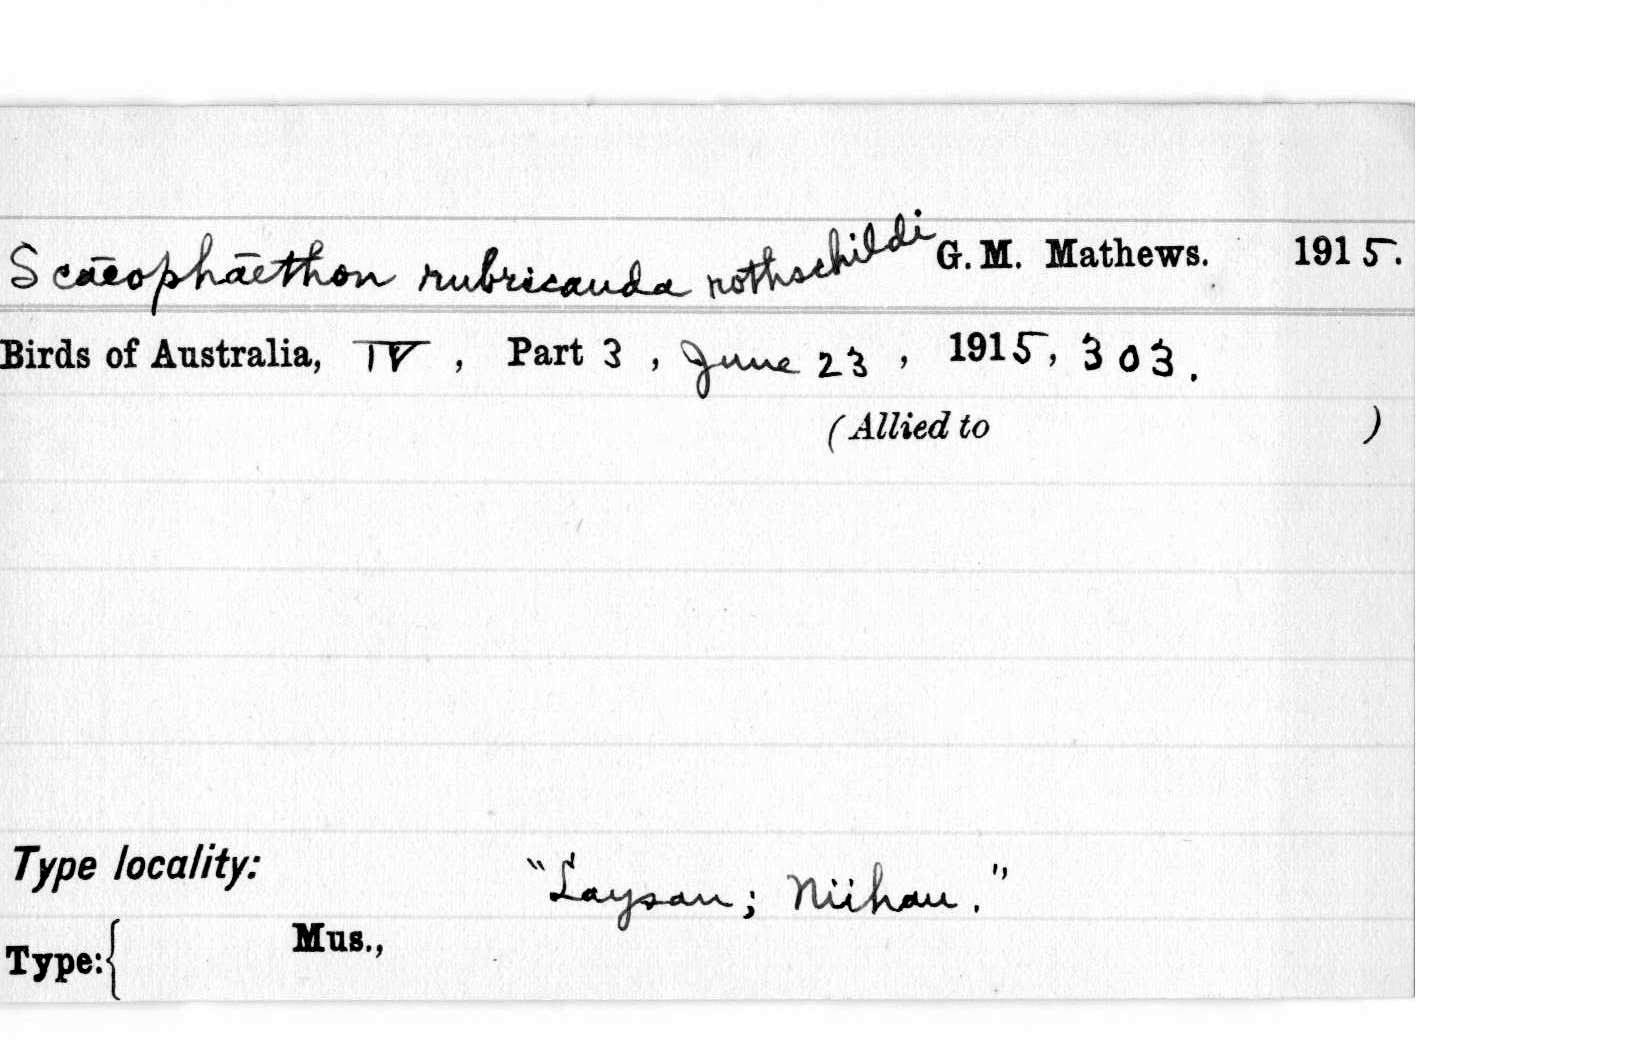 Scaeophaethon rubricauda rothschildi G. M. Mathews. 1915.
Birds of Australia, IV, Part 3, June 23, 1915, 303.
(Allied to )
Type locality: "Laysan; Niihau."
Type:{ Mus.,